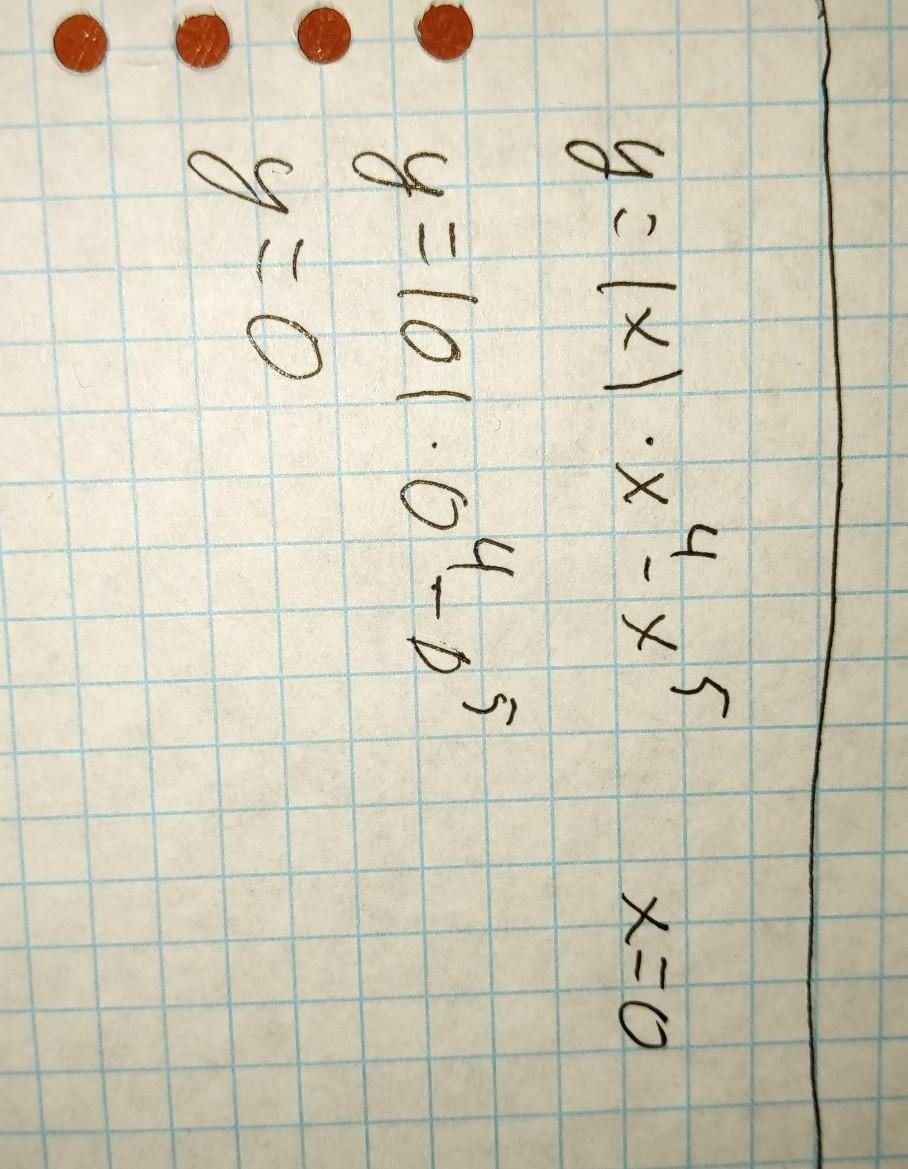 y = |x| · x⁴ - x⁵ x = 0
y = |0| · 0⁴ - 0⁵
y = 0